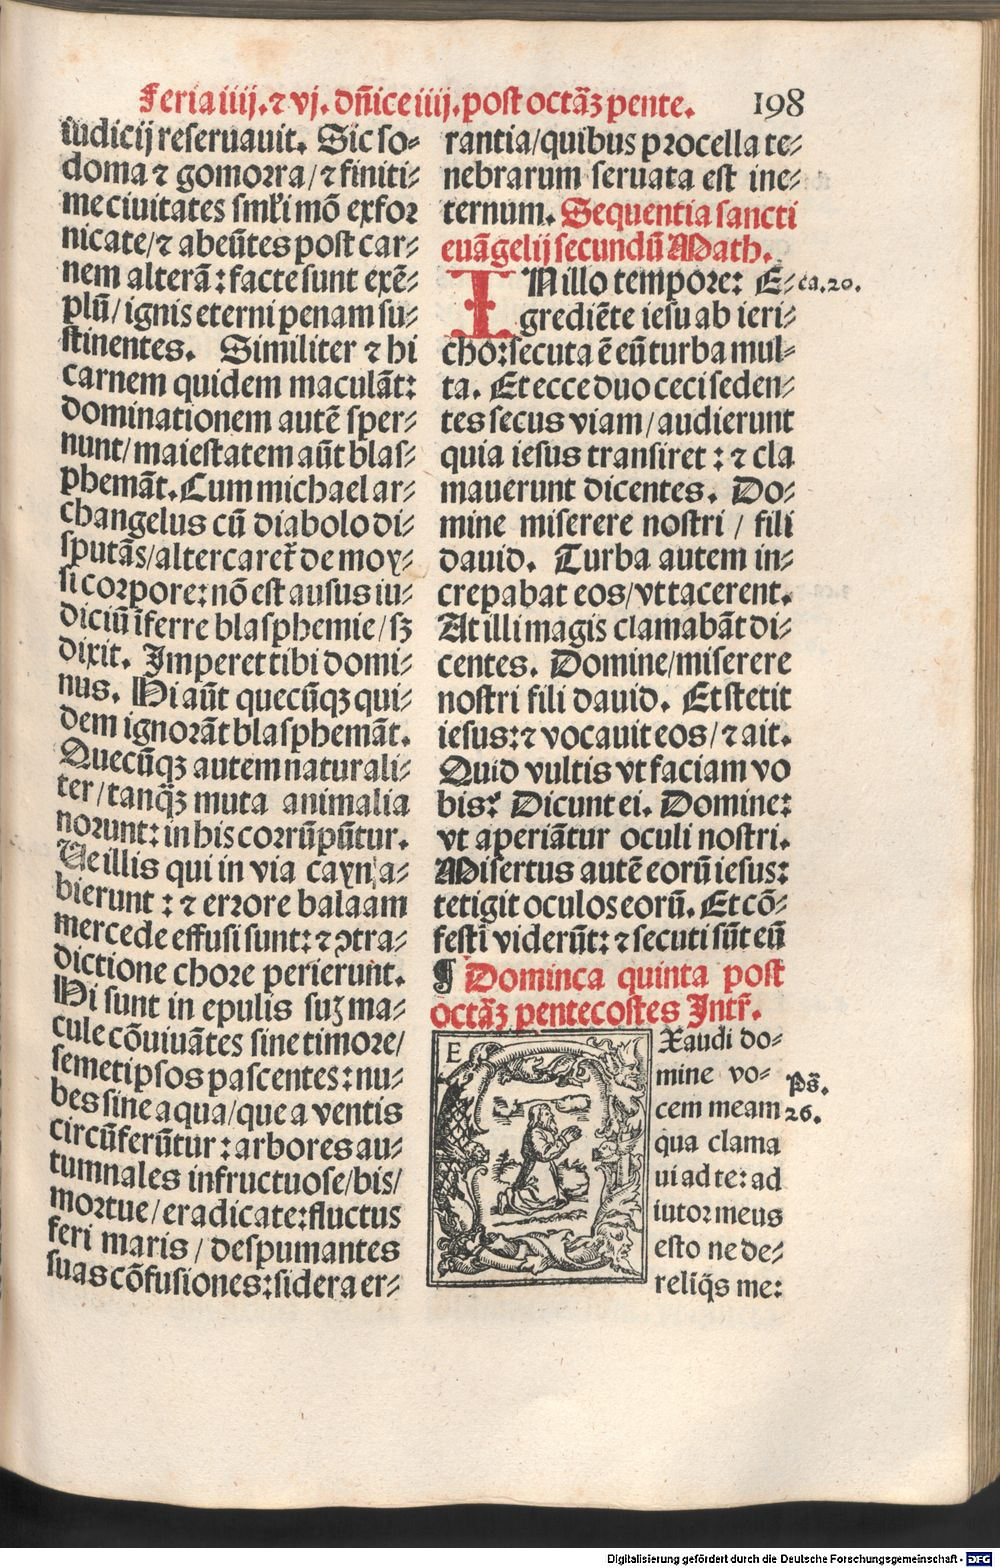 Feria iiij. ⁊ vj. dn̄ice iiij. post octāꝫ pente. 198
iudicij reseruauit. Sic so⸗
doma ⁊ gomorra/ ⁊ finiti⸗
me ciuitates smłi mō exfor
nicate/ ⁊ abeūtes post car⸗
nem alterā: facte sunt exē⸗
plū/ ignis eterni penam su⸗
stinentes. Similiter ⁊ hi
carnem quidem maculāt:
dominationem autē sper⸗
nunt/ maiestatem aūt blas⸗
phemāt. Cum michael ar⸗
changelus cū diabolo di⸗
sputās/ altercaret̄ de moy⸗
si corpore: nō est ausus iu⸗
diciū īferre blasphemie/ sꝫ
dixit. Imperet tibi domi⸗
nus. Hi aūt quecūqꝫ qui⸗
dem ignorāt blasphemāt.
Quecūqꝫ autem naturali⸗
ter/ tanq̄ꝫ muta animalia
norunt: in his corrūpūtur.
Ue illis qui in via cayn a⸗
bierunt: ⁊ errore balaam
mercede effusi sunt: ⁊ ↄtra⸗
dictione chore perierunt.
Hi sunt in epulis suꝫ ma⸗
cule cōuiuātes sine timore/
semetipsos pascentes: nu⸗
bes sine aqua/ que a ventis
circūferūtur: arbores au⸗
tumnales infructuose/ bis/
mortue/ eradicate: fluctus
feri maris/ despumantes
suas cōfusiones: sidera er⸗
rantia/ quibus procella te⸗
nebrarum seruata est in e⸗
ternum. Sequentia sancti
euāgelij secundū Math.
IN illo tempore: E⸗ ca.20.
grediēte iesu ab ieri⸗
cho: secuta ē eū turba mul⸗
ta. Et ecce duo ceci seden⸗
tes secus viam/ audierunt
quia iesus transiret: ⁊ cla
mauerunt dicentes. Do⸗
mine miserere nostri/ fili
dauid. Turba autem in⸗
crepabat eos/ vt tacerent.
At illi magis clamabāt di⸗
centes. Domine/ miserere
nostri fili dauid. Et stetit
iesus: ⁊ vocauit eos/ ⁊ ait.
Quid vultis vt faciam vo
bis? Dicunt ei. Domine:
vt aperiātur oculi nostri.
Misertus autē eorū iesus:
tetigit oculos eorū. Et cō⸗
festī viderūt: ⁊ secuti sūt eū
¶ Dominca quinta post
octāꝫ pentecostes Intr̄.
EXaudi do⸗
mine vo⸗ ps̄.
cem meam 26.
qua clama
ui ad te: ad
iutor meus
esto ne de⸗
reliq̄s me:
Digitalisierung gefördert durch die Deutsche Forschungsgemeinschaft - DFG